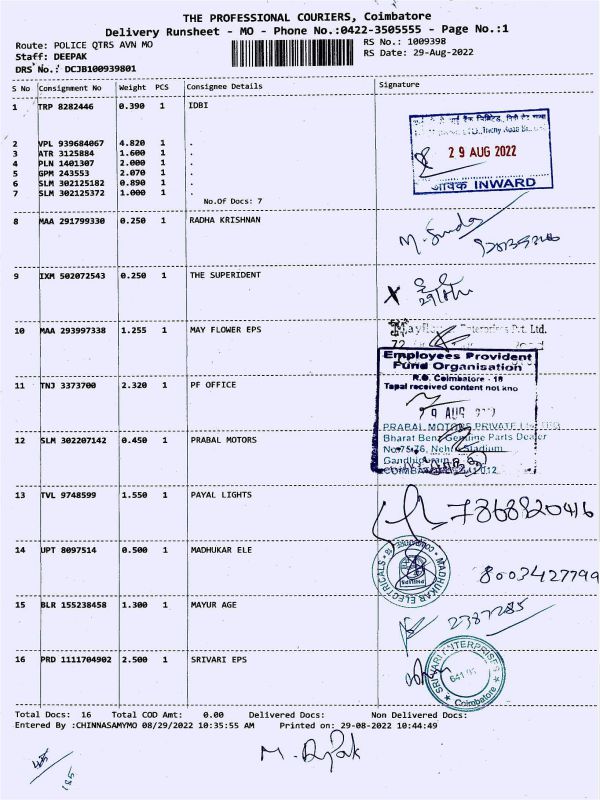 THE PROFESSIONAL COURIERS, Coimbatore
Delivery Runsheet - MO - Phone No.:0422-3505555 - Page No.:1
Route: POLICE QTRS AVN MO
RS No.: 1009398
Staff: DEEPAK
RS Date: 29-Aug-2022
DRS No.: DCJB100939801
S No Consignment No Weight PCS Consignee Details Signature
1 TRP 8282446 0.390 1 IDBI
2 VPL 939684067 4.820 1 .
3 ATR 3125884 1.600 1 .
4 PLN 1401307 2.000 1 .
5 GPM 243553 2.070 1 .
6 SLM 302125182 0.890 1 .
7 SLM 302125372 1.000 1 .
No.Of Docs: 7
29 AUG 2022
आवक INWARD
8 MAA 291799330 0.250 1 RADHA KRISHNAN
9 IXM 502072543 0.250 1 THE SUPERIDENT
10 MAA 293997338 1.255 1 MAY FLOWER EPS
Pvt. Ltd.
Employees Provident
Fund Organisation
R.O. Coimbatore - 18
Tapal received content not kno
11 TNJ 3373700 2.320 1 PF OFFICE
PRABAL MOTORS PRIVATE LIMITED
Bharat Benz Genuine Parts Dealer
No:75-76, Nehru Stadium,
12 SLM 302207142 0.450 1 PRABAL MOTORS
13 TVL 9748599 1.550 1 PAYAL LIGHTS
7868820416
14 UPT 8097514 0.500 1 MADHUKAR ELE
MADHUKAR ELECTRICALS
8003427799
15 BLR 155238458 1.300 1 MAYUR AGE
2387285
16 PRD 1111704902 2.500 1 SRIVARI EPS
SRIVARI ENTERPRISES
Coimbatore
Total Docs: 16 Total COD Amt: 0.00 Delivered Docs: Non Delivered Docs:
Entered By :CHINNASAMYMO 08/29/2022 10:35:55 AM Printed on: 29-08-2022 10:44:49